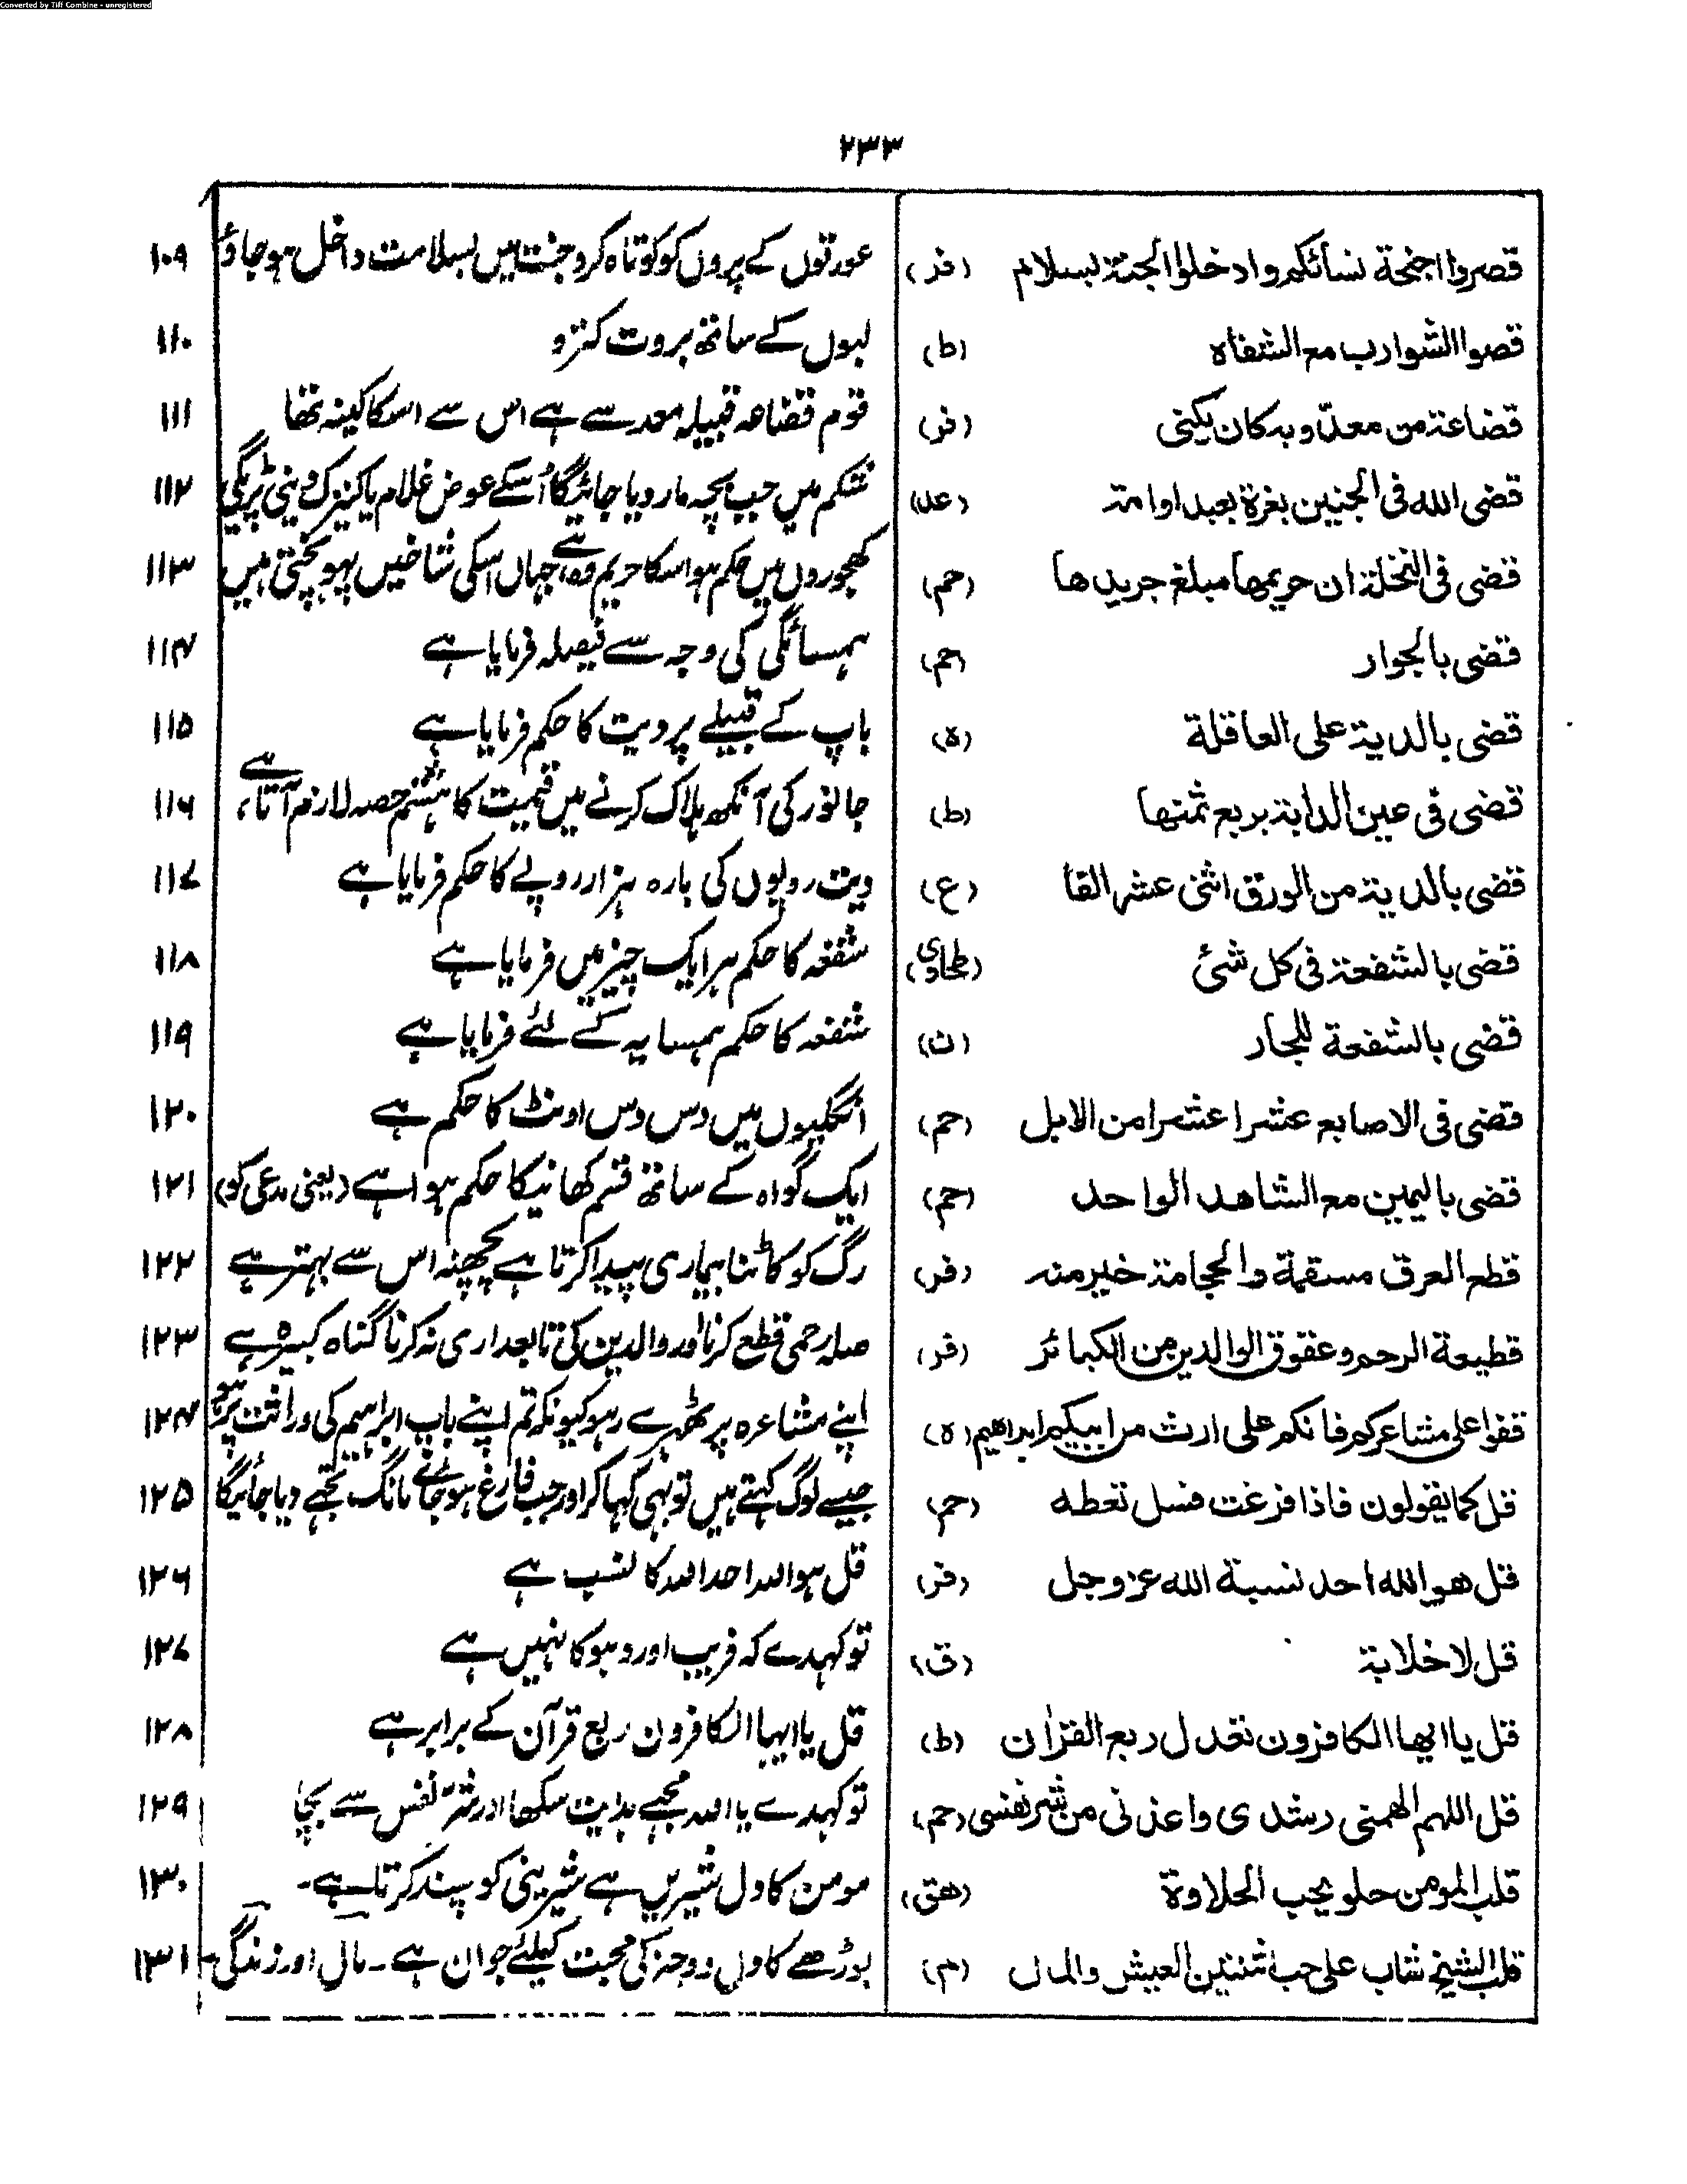 Converted by Tiff Combine - unregistered
۲۳۳
قصروا اجنحة نسائكم وادخلوا الجنة بسلام (فر) عورتوں کے پروں کو کوتاہ کرو جنت میں بسلامت داخل ہو جاؤ ۱۰۹
قصوا الشوارب مع الشفاه (ط) لبوں کے ساتھ بروت کترو ۱۱۰
قضاعة من معدّ وبه كان يكنى (فر) قوم قضاعہ قبیلہ معد سے ہے اس سے اسکا کینہ تھا ۱۱۱
قضى الله فى الجنين بغرة بعبد او امة (عد) شکم میں جب بچہ مار دیا جائیگا اُسکے عوض غلام یا کنیزک دینی پڑیگی ۱۱۲
قضى فى النخلة ان حريمها مبلغ جريدها (حم) کھجوروں میں حکم ہوا اسکا حریم وہ ہے جہاں اسکی شاخیں پہونچتی ہیں ۱۱۳
قضى بالجوار (حم) ہمسائگی کی وجہ سے فیصلہ فرمایا ہے ۱۱۴
قضى بالدية على العاقلة (ہ) باپ کے قبیلے پر دیت کا حکم فرمایا ہے ۱۱۵
قضى فى عين الدابة بربع ثمنها (ط) جانور کی آنکھ ہلاک کرنے میں قیمت کا ہشتم حصہ لازم آتا ہے ۱۱۶
قضى بالدية من الورق اثنى عشر الفا (ع) دیت روپوں کی بارہ ہزار روپے کا حکم فرمایا ہے ۱۱۷
قضى بالشفعة فى كل شئ (طحاوی) شفعہ کا حکم ہر ایک چیز میں فرمایا ہے ۱۱۸
قضى بالشفعة للجار (ن) شفعہ کا حکم ہمسایہ کے لئے فرمایا ہے ۱۱۹
قضى فى الاصابع عشرا عشرا من الابل (حم) انگلیوں میں دس دس اونٹ کا حکم ہے ۱۲۰
قضى باليمين مع الشاهد الواحد (حم) ایک گواہ کے ساتھ قسم کھانیکا حکم ہوا ہے (یعنی مدعی کو) ۱۲۱
قطع العرق مسقمة والحجامة خير منه (فر) رگ کو کاٹنا بیماری پیدا کرتا ہے پچھنہ اس سے بہتر ہے ۱۲۲
قطيعة الرحم وعقوق الوالدين من الكبائر (فر) صلہ رحمی قطع کرنا اور والدین کی تابعداری نہ کرنا گناہ کبیرہ ہے ۱۲۳
قفوا على مشاعركم فانكم على ارث من ابيكم ابراهيم (ہ) اپنے مشاعرہ پر ٹھہرے رہو کیونکہ تم اپنے باپ ابراہیم کی وراثت پر ہو ۱۲۴
قل كما يقولون فاذا فرغت فسل تعطه (حم) جیسے لوگ کہتے ہیں تو بہی کہا کر اور جب فارغ ہو جائے مانگ تجھے دیا جائیگا ۱۲۵
قل هو الله احد نسبة الله عز وجل (فر) قل ہو اللہ احد اللہ کا نسب ہے ۱۲۶
قل لا خلابة (ق) تو کہدے کہ فریب اور دہوکا نہیں ہے ۱۲۷
قل يا ايها الكافرون تعدل ربع القرآن (ط) قل یا ایہا الکافرون ربع قرآن کے برابر ہے ۱۲۸
قل اللهم الهمنى رشدى واعذنى من شر نفسى (حم) تو کہدے یا اللہ مجہے ہدایت سکھا اور شرّ نفس سے بچا ۱۲۹
قلب المومن حلو يحب الحلاوة (هق) مومن کا دل شیریں ہے شیرینی کو پسند کرتا ہے۔ ۱۳۰
قلب الشيخ شاب على حب اثنتين العيش والمال (م) بوڑھے کا دل دو چیز کی محبت کیلئے جوان ہے۔ مال اور زندگی۔ ۱۳۱